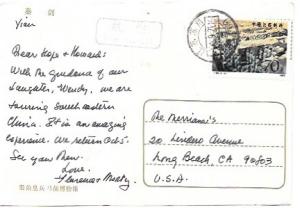 秦 剑
Xian
Dear Hope & Howard:
With the guidance of our
daughter, Wendy, we are
touring South eastern
China. It is an amazing
experience. We return Oct 5.
See you then.
Love,
Florence &
The Merriams
20 Lindero Avenue
Long Beach, CA 90803
U.S.A.
中国人民邮政
70
秦始皇兵马俑博物馆